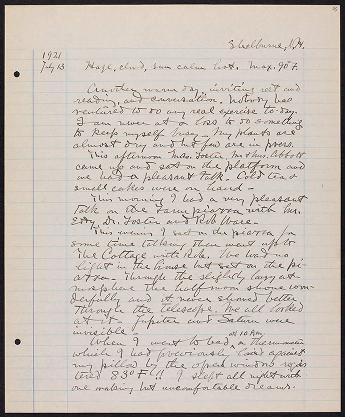 Shelburne, N.H.
1921
July 13 Haze, cloud, sun calm hot. Max. 90° F.
Another warm day, inviting rest and
reading, and conversation. Nobody has
ventured to do any real exercise to-day.
I am never at a loss to do something
to keep myself busy. My plants are
almost dry and but few are in press.
This afternoon Mrs. Foster, Mr & Mrs. Abbott
came up and sat on the platform and
we had a pleasant talk. Cold tea &
small cakes were on hand -
This morning I had a very pleasant
talk on the farm piazza with Mr.
Dr. Foster and Rob Ware.
This evening I sat on the piazza for
some time talking then went up to
The Cottage with Rob. We had no
light in the house but sat on the pi-
azza. Through the slightly hazy at-
mosphere the half moon shone won-
derfully and it never showed better
through the telescope. We all looked
at it. Jupiter and Saturn were
invisible -
When I went to bed, at 10 P.M. a thermometer
which I had previously laid against
my pillow by the open window regis-
tered 83° F.!! I slept all right with
one making but uncomfortable dreams.